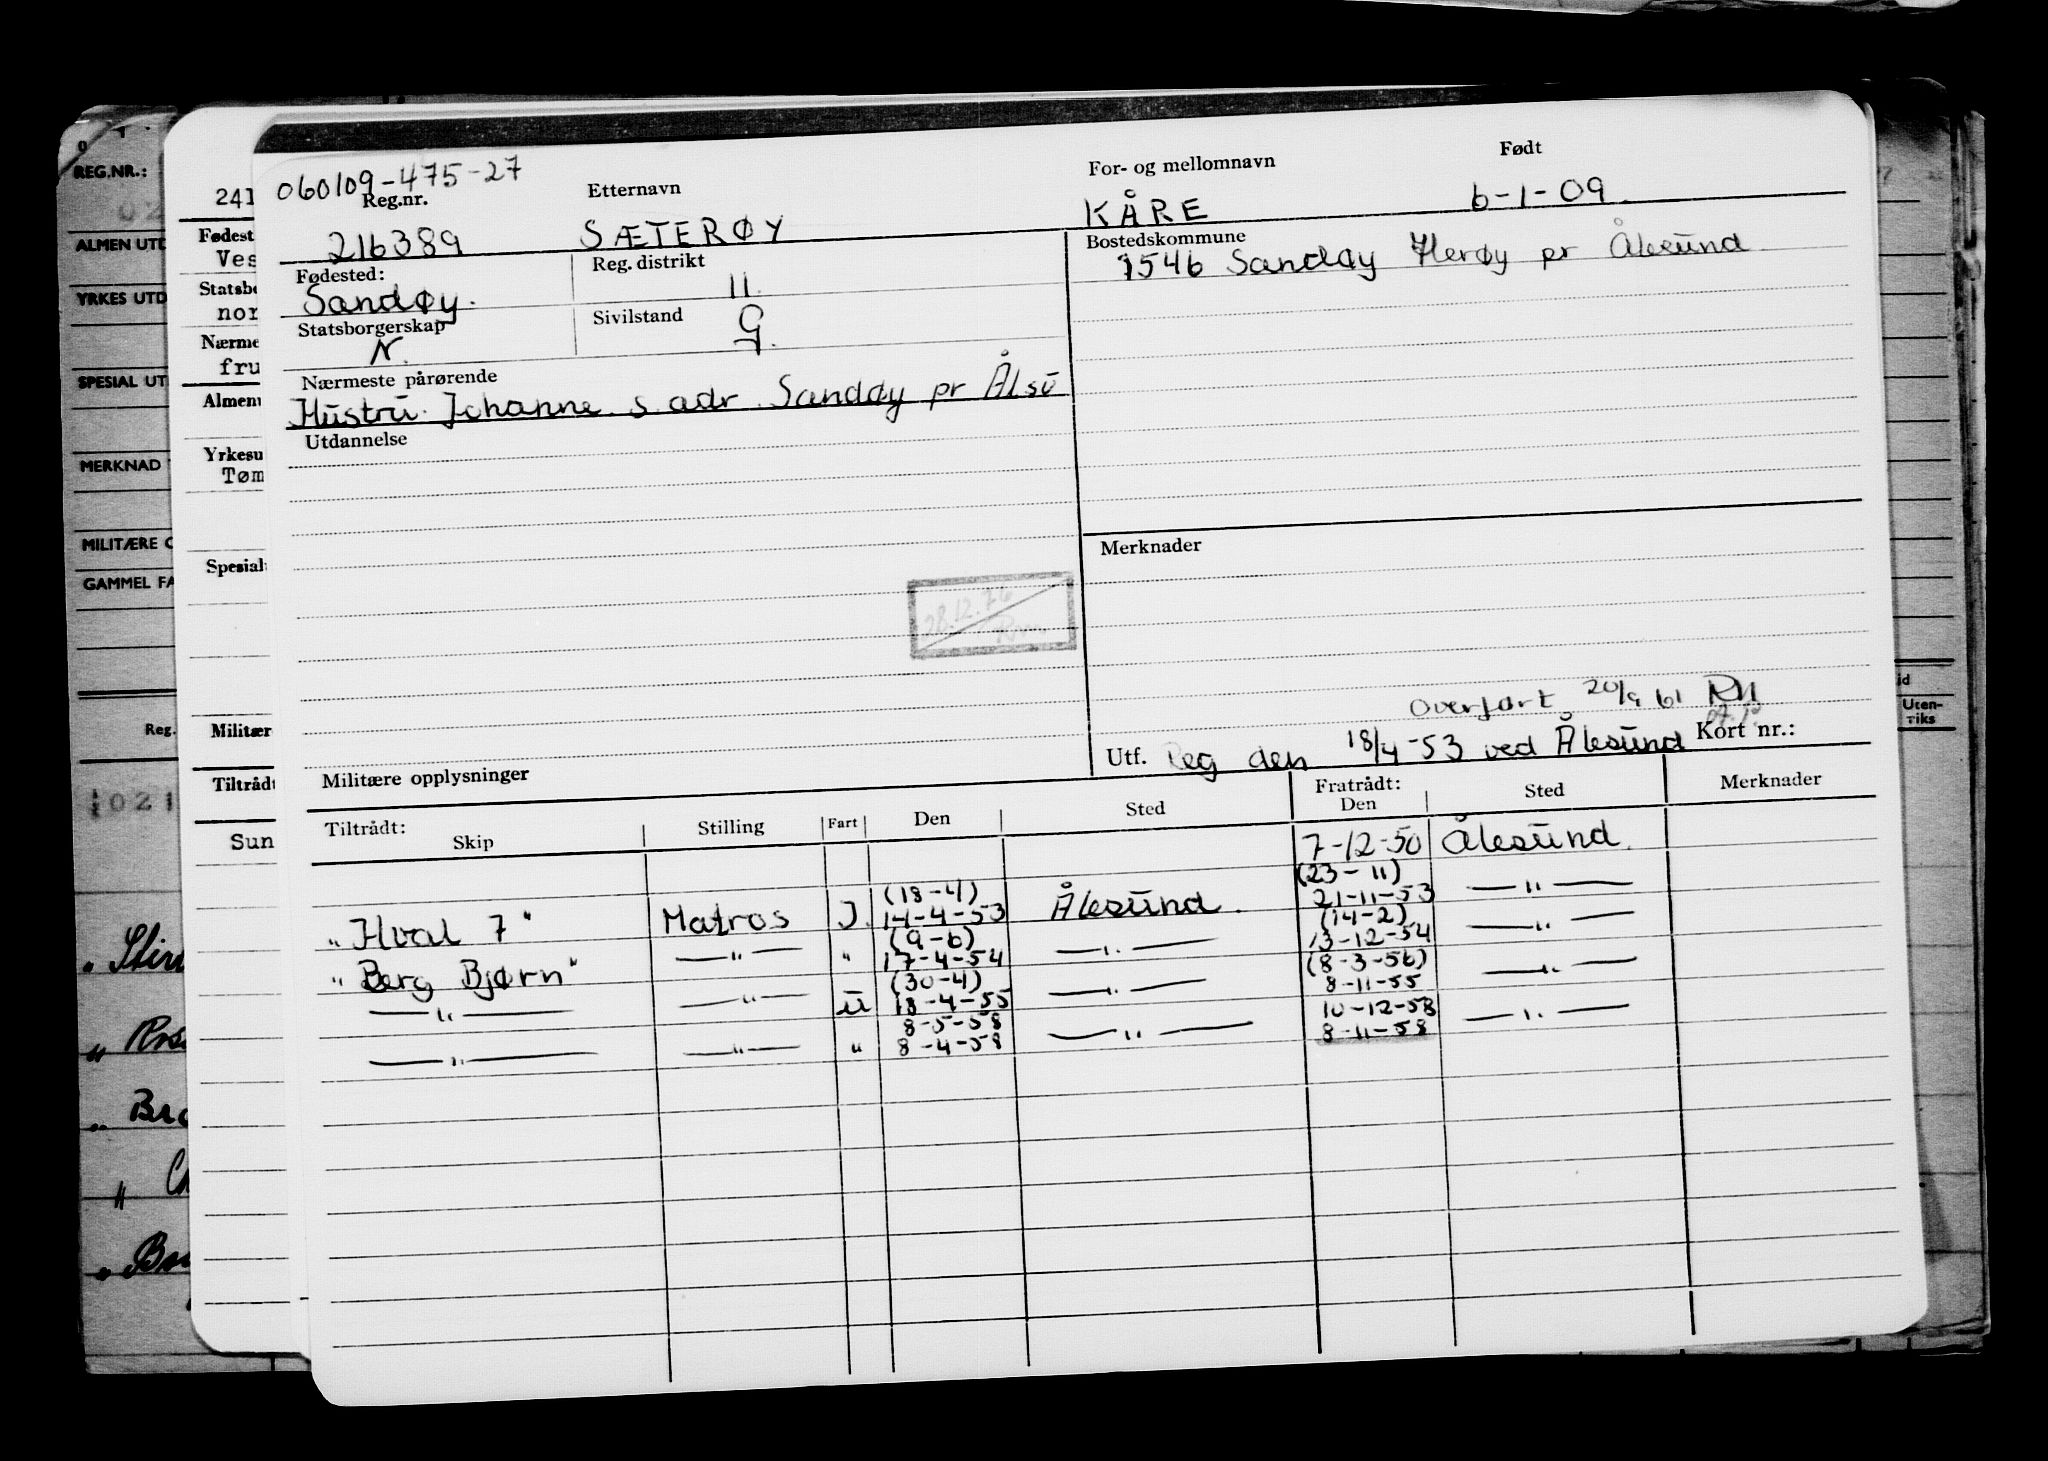 060109-475-27
Reg.nr.
Etternavn
For- og mellomnavn
Født
216389
SÆTERØY
KÅRE
6-1-09.
Fødested:
Reg. distrikt
Bostedskommune
Sandøy.
11.
1546 Sandøy Herøy pr Ålesund
Statsborgerskap
Sivilstand
N.
G.
Nærmeste pårørende
Hustru Johanne s. adr. Sandøy pr Ålsu
Utdannelse
Merknader
28.12.76
Overført 20/9 61 RM
Utf. Reg den 18/4-53 ved Ålesund Kort nr.:
Militære opplysninger
Tiltrådt:
Fratrådt:
Skip
Stilling
Fart
Den
Sted
Den
Sted
Merknader
7-12-50 Ålesund.
(18-4) (23-11)
"Hval 7" Matros J. 14-4-53 Ålesund. 21-11-53 —"—
(9-6) (14-2)
"Berg Bjørn" —"— " 17-4-54 —"— 13-12-54 —"—
(30-4) (8-3-56)
—"— —"— U 18-4-55 —"— 8-11-55 —"—
8-5-58 10-12-58
—"— —"— " 8-4-58 —"— 8-11-58 —"—
241
Fødest
Ves
Statsbo
nor
Nærme
fru
Almen
Yrkesu
Tøm
Spesial
Militær
Tiltrådt
Sun
REG.NR.:
ALMEN UTD
YRKES UTD
SPESIAL UT
MERKNAD
MILITÆRE O
GAMMEL FA
Reg.
021
Bra
id
Uten-
riks